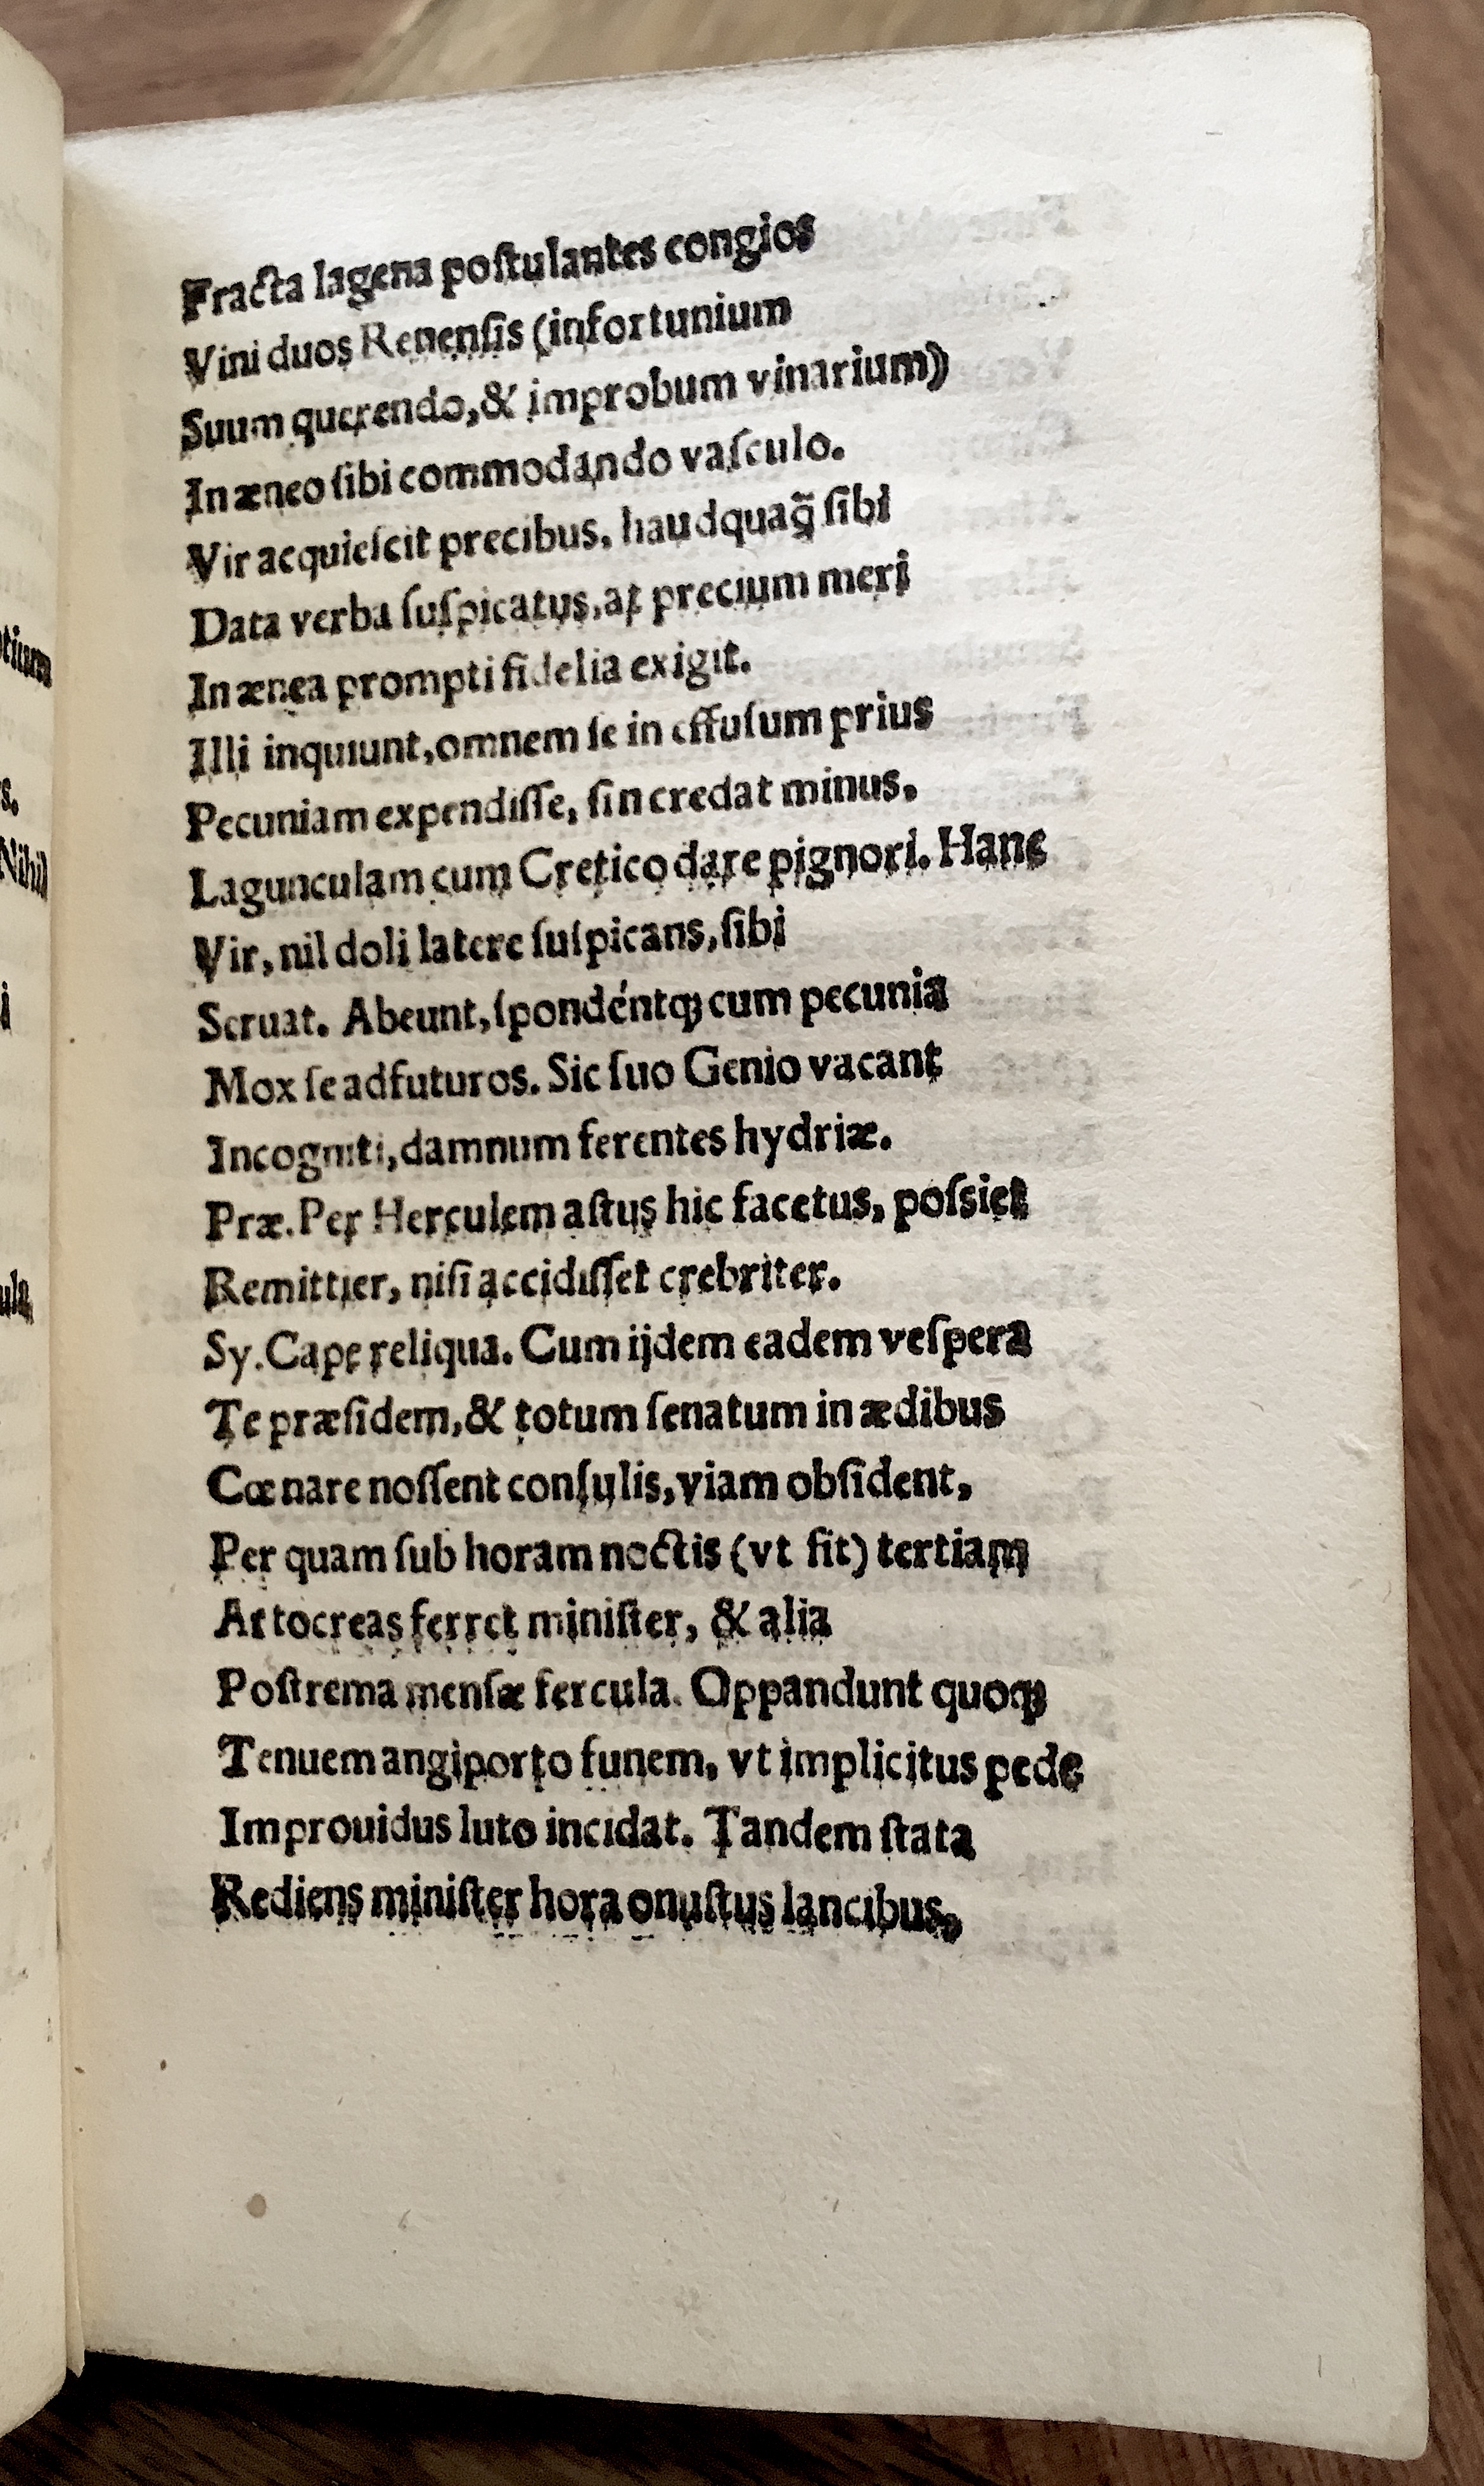 Fracta lagena poſtulantes congios
Vini duos Renenſis (infortunium
Suum querendo,& improbum vinarium)
In æneo ſibi commodando vaſculo.
Vir acquieſcit precibus, haudquaq̃ ſibi
Data verba ſuſpicatus,at precium meri
In ænea prompti fidelia exigit.
Illi inquiunt,omnem ſe in effuſum prius
Pecuniam expendiſſe, ſin credat minus,
Lagunculam cum Cretico dare pignori. Hanc
Vir, nil doli latere ſuſpicans,ſibi
Seruat. Abeunt,ſpondéntqꝫ cum pecunia
Mox ſe adfuturos. Sic ſuo Genio vacant
Incogniti,damnum ferentes hydriæ.
Præ.Per Herculem aſtus hic facetus, poſsiet
Remittier, niſi accidiſſet crebriter.
Sy.Cape reliqua. Cum ijdem eadem veſpera
Te præſidem,& totum ſenatum in ædibus
Cœnare noſſent conſulis,viam obſident,
Per quam ſub horam noctis (vt fit) tertiam
Artocreas ferret miniſter, & alia
Poſtrema menſæ fercula. Oppandunt quoqꝫ
Tenuem angiporto funem, vt implicitus pede
Improuidus luto incidat. Tandem ſtata
Rediens miniſter hora onuſtus lancibus,